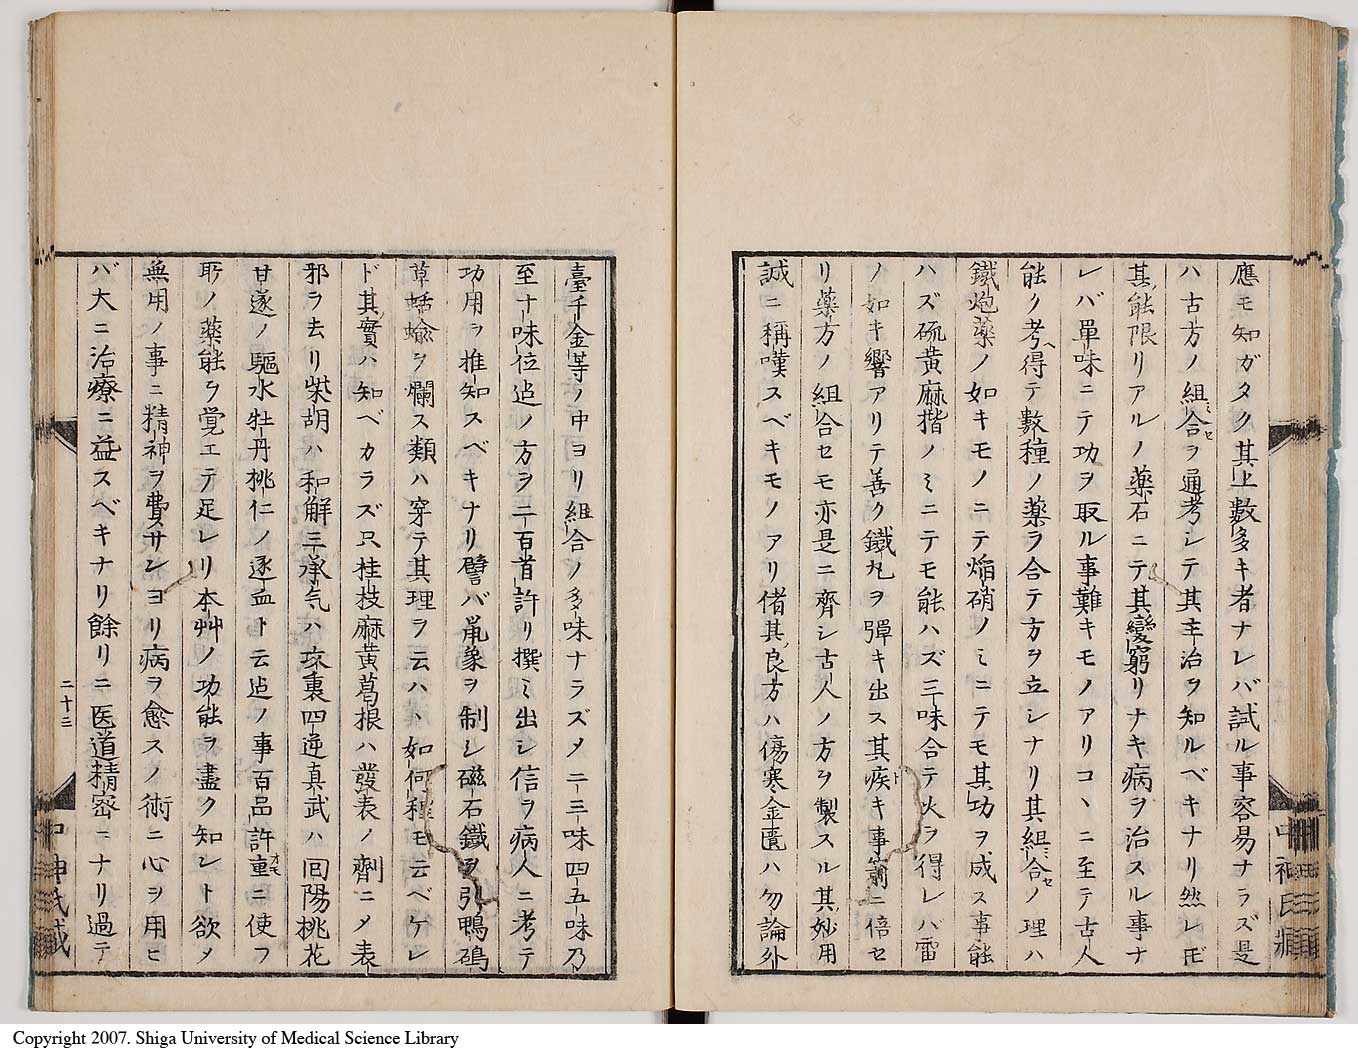 應モ知ガタク其上數多キ者ナレバ試ル事容易ナラズ是
ハ古方ノ組合ヲ通考シテ其主治ヲ知ルベキナリ然レ𪜈
其能限リアルノ藥石ニテ其變窮リナキ病ヲ治スル事ナ
レバ單味ニテ功ヲ取ル事難キモノアリコヽニ至テ古人
能ク考得テ數種ノ藥ヲ合テ方ヲ立シナリ其組合ノ理ハ
鐵炮藥ノ如キモノニテ焔硝ノミニテモ其功ヲ成ス事能
ハズ硫黄麻楷ノミニテモ能ハズ三味合テ火ヲ得レバ雷
ノ如キ響アリテ善ク鐵丸ヲ彈キ出ス其疾キ事箭ニ倍セ
リ藥方ノ組合セモ亦是ニ齊シ古人ノ方ヲ製スル其妙用
誠ニ稱嘆スベキモノアリ偖其良方ハ傷寒金匱ハ勿論外
臺千金等ノ中ヨリ組合ノ多味ナラズメ二三味四五味乃
至十味位迠ノ方ヲ二百首許リ撰ミ出シ信ヲ病人ニ考テ
功用ヲ推知スベキナリ譬バ鼠象ヲ制シ磁石鐵ヲ引鴨硇
草蛞蝓ヲ爛ス類ハ穿テ其理ヲ云ハヽ如何種モ云ベケレ
ド其實ハ知ベカラズ只桂枝麻黄葛根ハ發表ノ劑ニメ表
邪ヲ去リ柴胡ハ和解三承気ハ攻裏四逆真武ハ回陽桃花
甘遂ノ驅水牡丹桃仁ノ逐血ト云迠ノ事百品許重ニ使フ
所ノ藥能ヲ覚エテ足レリ本艸ノ功能ヲ盡ク知レト欲メ
無用ノ事ニ精神ヲ費サンヨリ病ヲ愈スノ術ニ心ヲ用ヒ
バ大ニ治療ニ益スベキナリ餘リニ医道精密ニナリ過テ
二十三
中神氏藏
Copyright 2007. Shiga University of Medical Science Library